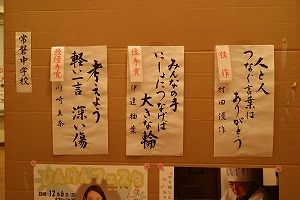 佳作
人と人
つなぐ言葉は
ありがとう
村田優作
優秀賞
みんなの手
いっしょにつなげば
大きな輪
伊達柚葉
最優秀賞
考えよう
軽い一言 深い傷
川崎真奈
常磐中学校
じんけんフェスタ
日時 12月6日